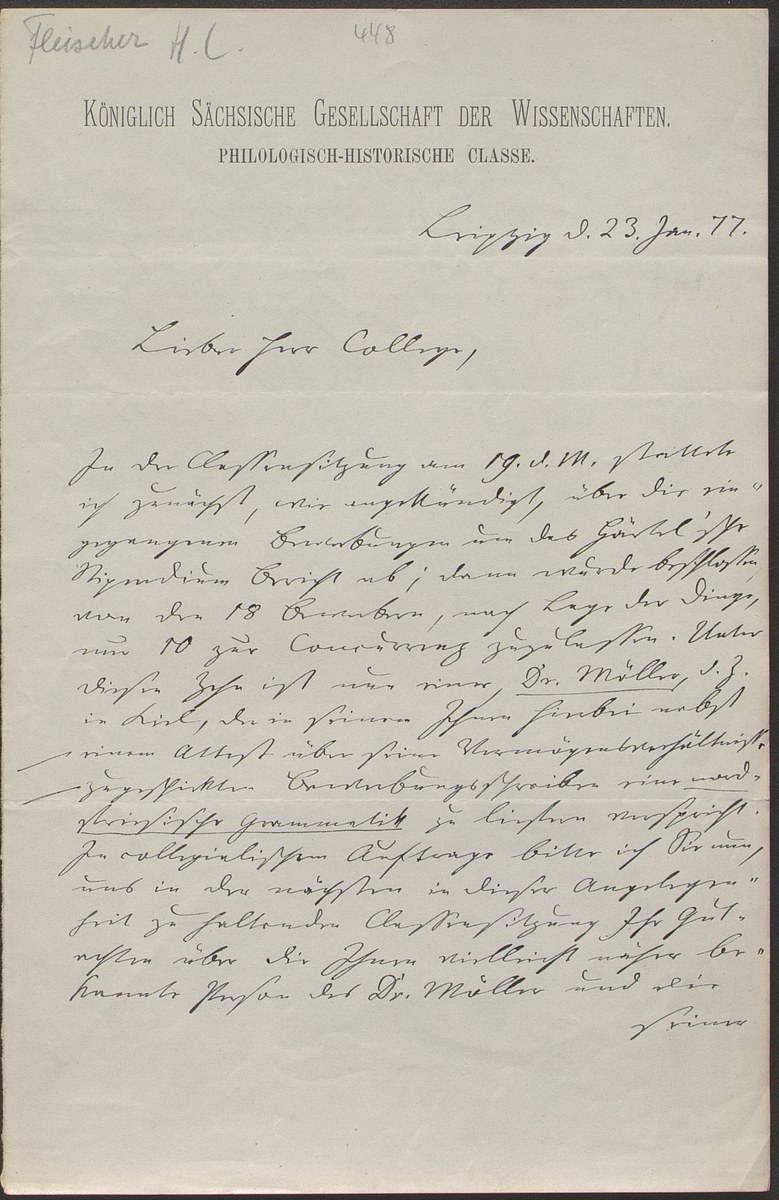 Fleischer H. L.
448
Königlich Sächsische Gesellschaft der Wissenschaften.
Philologisch-historische Classe.
Leipzig d. 23. Jan. 77.
Lieber Herr College,
In der Classensitzung am 19. d. M. stattete
ich zunächst, wie angekündigt, über die ein-
gegangenen Bewerbungen um das Härtel'sche
Stipendium Bericht ab; dann wurde beschlossen,
von den 18 Bewerbern, nach Lage der Dinge,
nur 10 zur Concurrenz zuzulassen. Unter
diesen Zehn ist nun einer, Dr. Möller, d. Z.
in Kiel, der in seinem Ihnen hierbei nebst
einem Attest über seine Vermögensverhältnisse
zugeschickten Bewerbungsschreiben eine nord-
friesische Grammatik zu liefern verspricht.
In collegialischem Auftrage bitte ich Sie nun,
uns in der nächsten in dieser Angelegen-
heit zu haltenden Classensitzung Ihr Gut-
achten über die Ihnen vielleicht näher be-
kannte Person des Dr. Möller und die
seiner